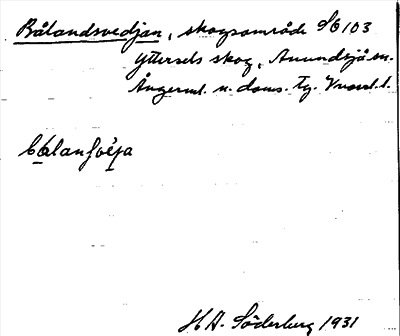 Bålandsvedjan, skogsområde S6103
Yttersels skog, Anundsjö sn.
Ångerml. n. doms. Tg. Vnorrl. l.
H. A. Söderberg 1931